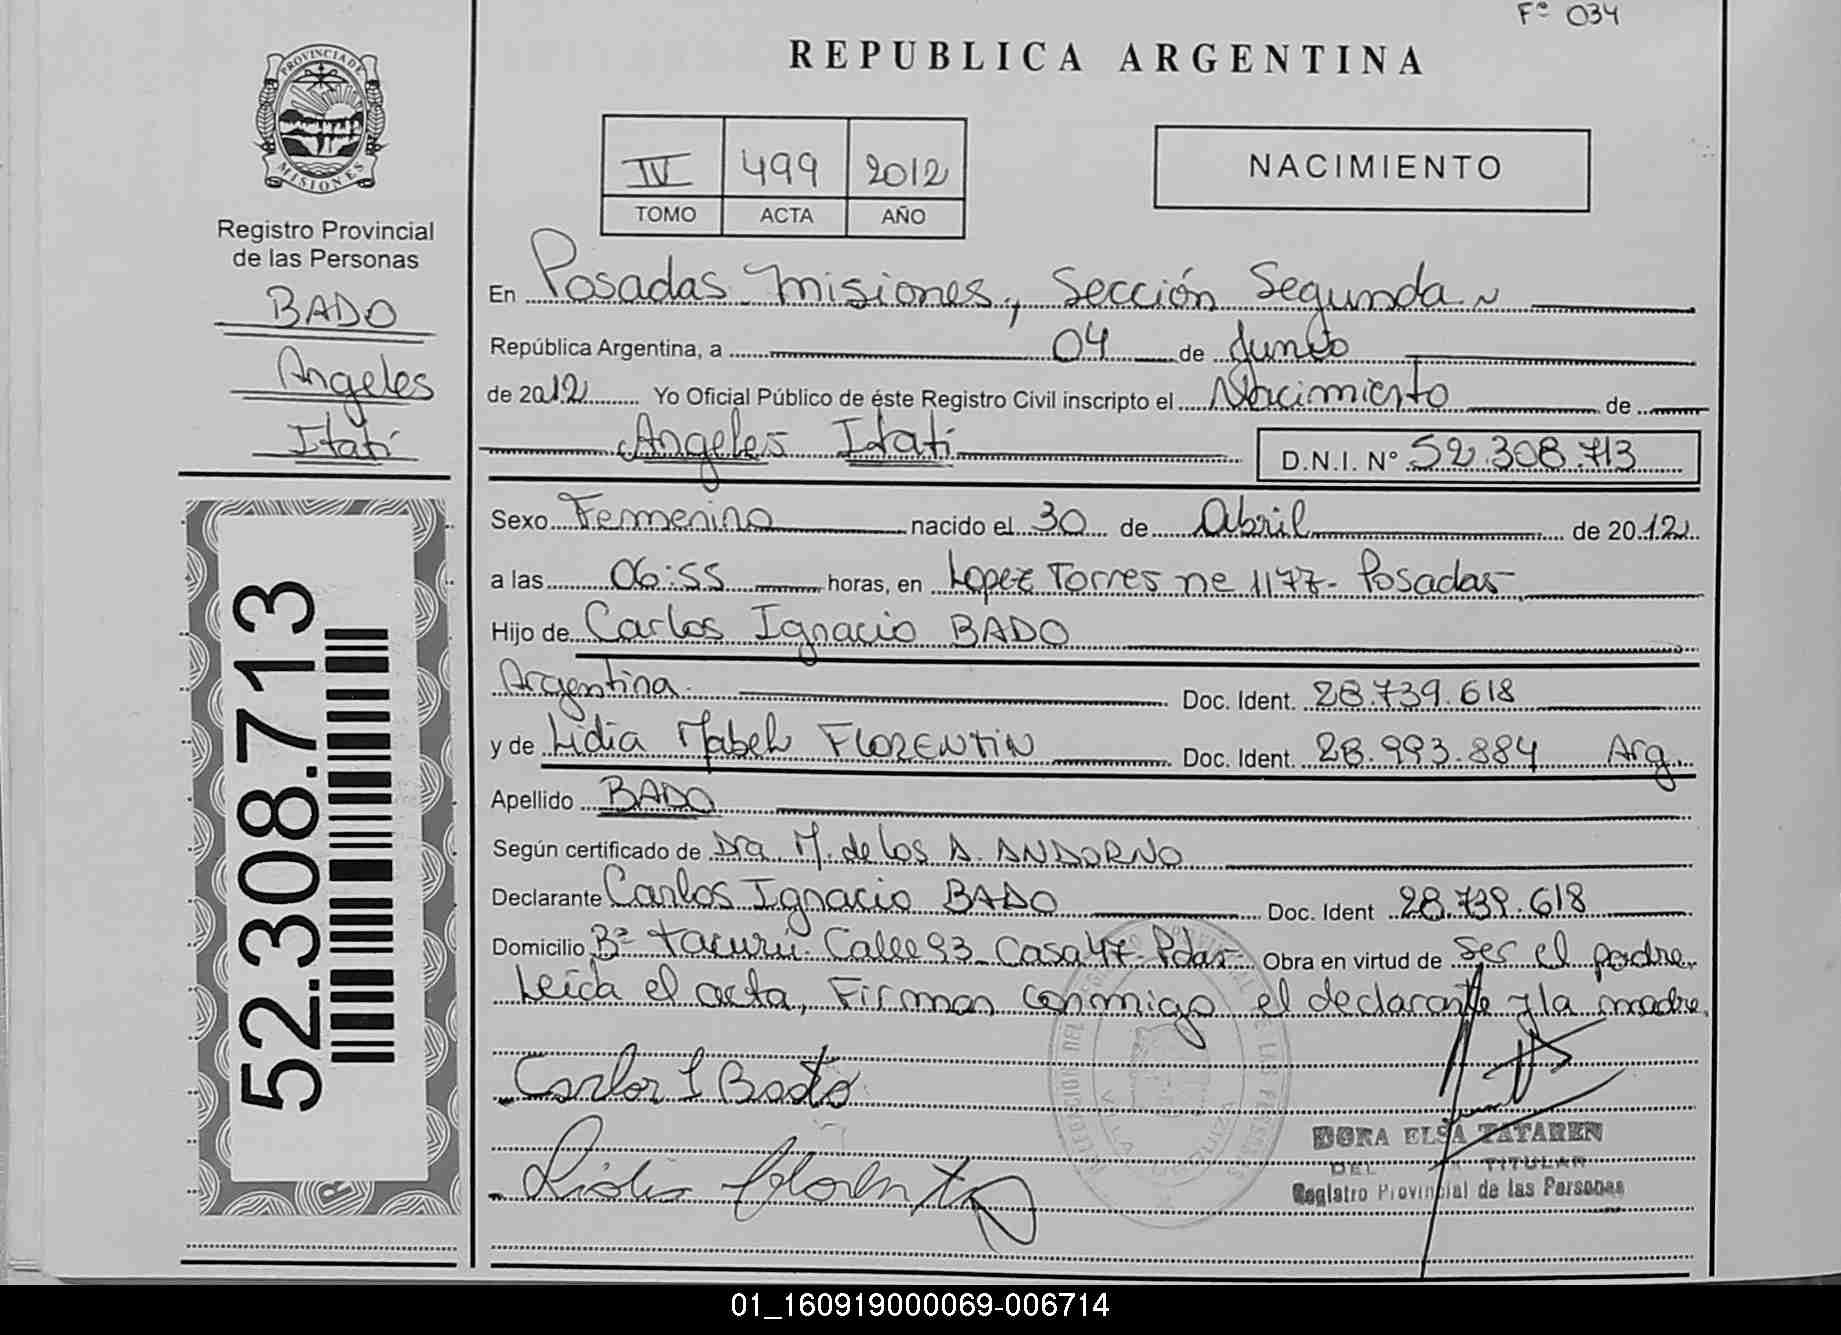 Fº 034
REPUBLICA ARGENTINA
PROVINCIA DE
MISIONES
Registro Provincial
de las Personas
BADO
Angeles
Itatí
52.308.713
IV 499 2012
TOMO ACTA AÑO
NACIMIENTO
En Posadas Misiones, Sección Segunda
República Argentina, a 04 de Junio
de 2012 Yo Oficial Público de éste Registro Civil inscripto el Nacimiento de
Angeles Itatí D.N.I. N° 52.308.713
Sexo Femenino nacido el 30 de Abril de 2012
a las 06:55 horas, en Lopez Torres ne 1177- Posadas
Hijo de Carlos Ignacio BADO
Argentina Doc. Ident. 28.739.618
y de Lidia Mabel FLORENTIN Doc. Ident. 28.993.884 Arg.
Apellido BADO
Según certificado de Dra M. de los A. ANDORNO
Declarante Carlos Ignacio BADO Doc. Ident 28.739.618
Domicilio Bº Tacurú Calle 93 Casa 47- Pdas- Obra en virtud de ser el padre.
Leída el acta, Firman conmigo el declarante y la madre.
Carlos I Bado
Lidia Florentin
DORA ELSA TATAREN
TITULAR
Registro Provincial de las Personas
01_160919000069-006714